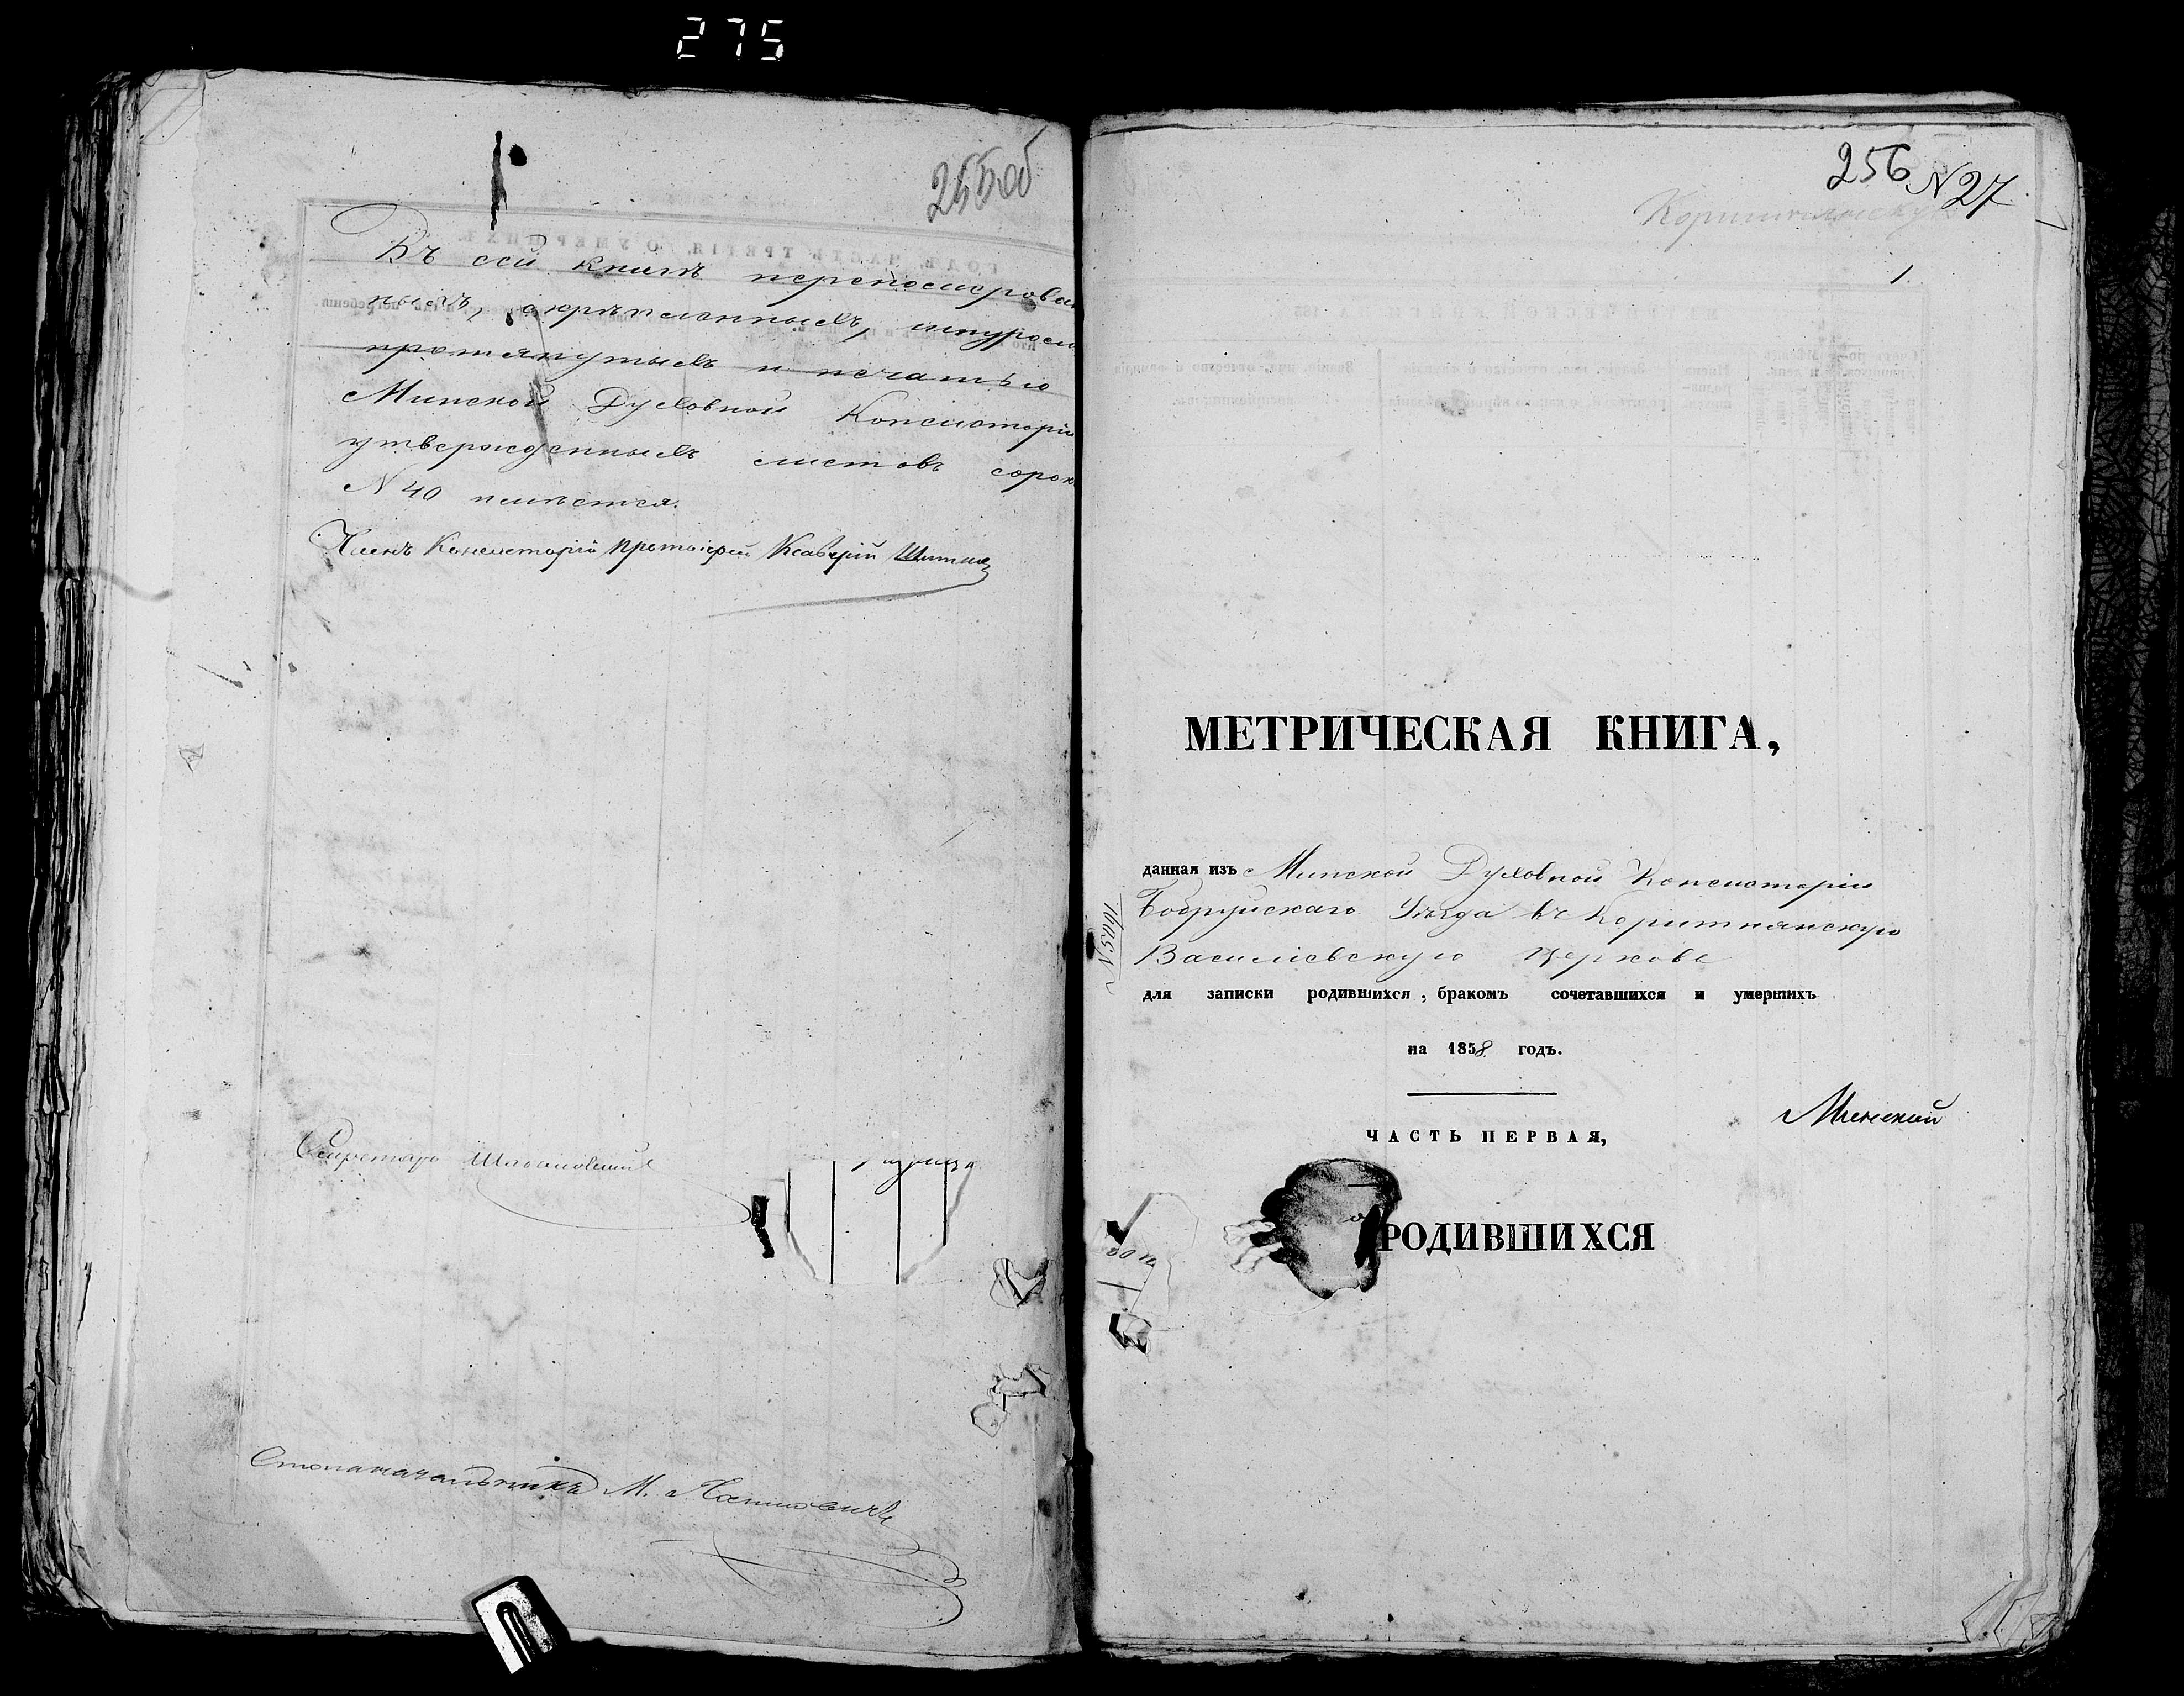 275
255об
Въ сей книгѣ переномерован
ныхъ, скрѣпленныхъ, шнуром
протянутыхъ и печатью
Минской Духовной Консисторіи
утвержденныхъ листовъ сорок
N 40 имѣется.
Членъ Консисторіи Протоіерей Ксаверій
Секретарь
Столоначальникъ М.
256 N 27
1.
МЕТРИЧЕСКАЯ КНИГА,
данная изъ Минской Духовной Консисторіи
Бобруйскаго Уѣзда въ Коритнянскую
Василіевскую церковь
для записки родившихся, бракомъ сочетавшихся и умершихъ
на 1858 годъ.
Минской
ЧАСТЬ ПЕРВАЯ,
РОДИВШИХСЯ